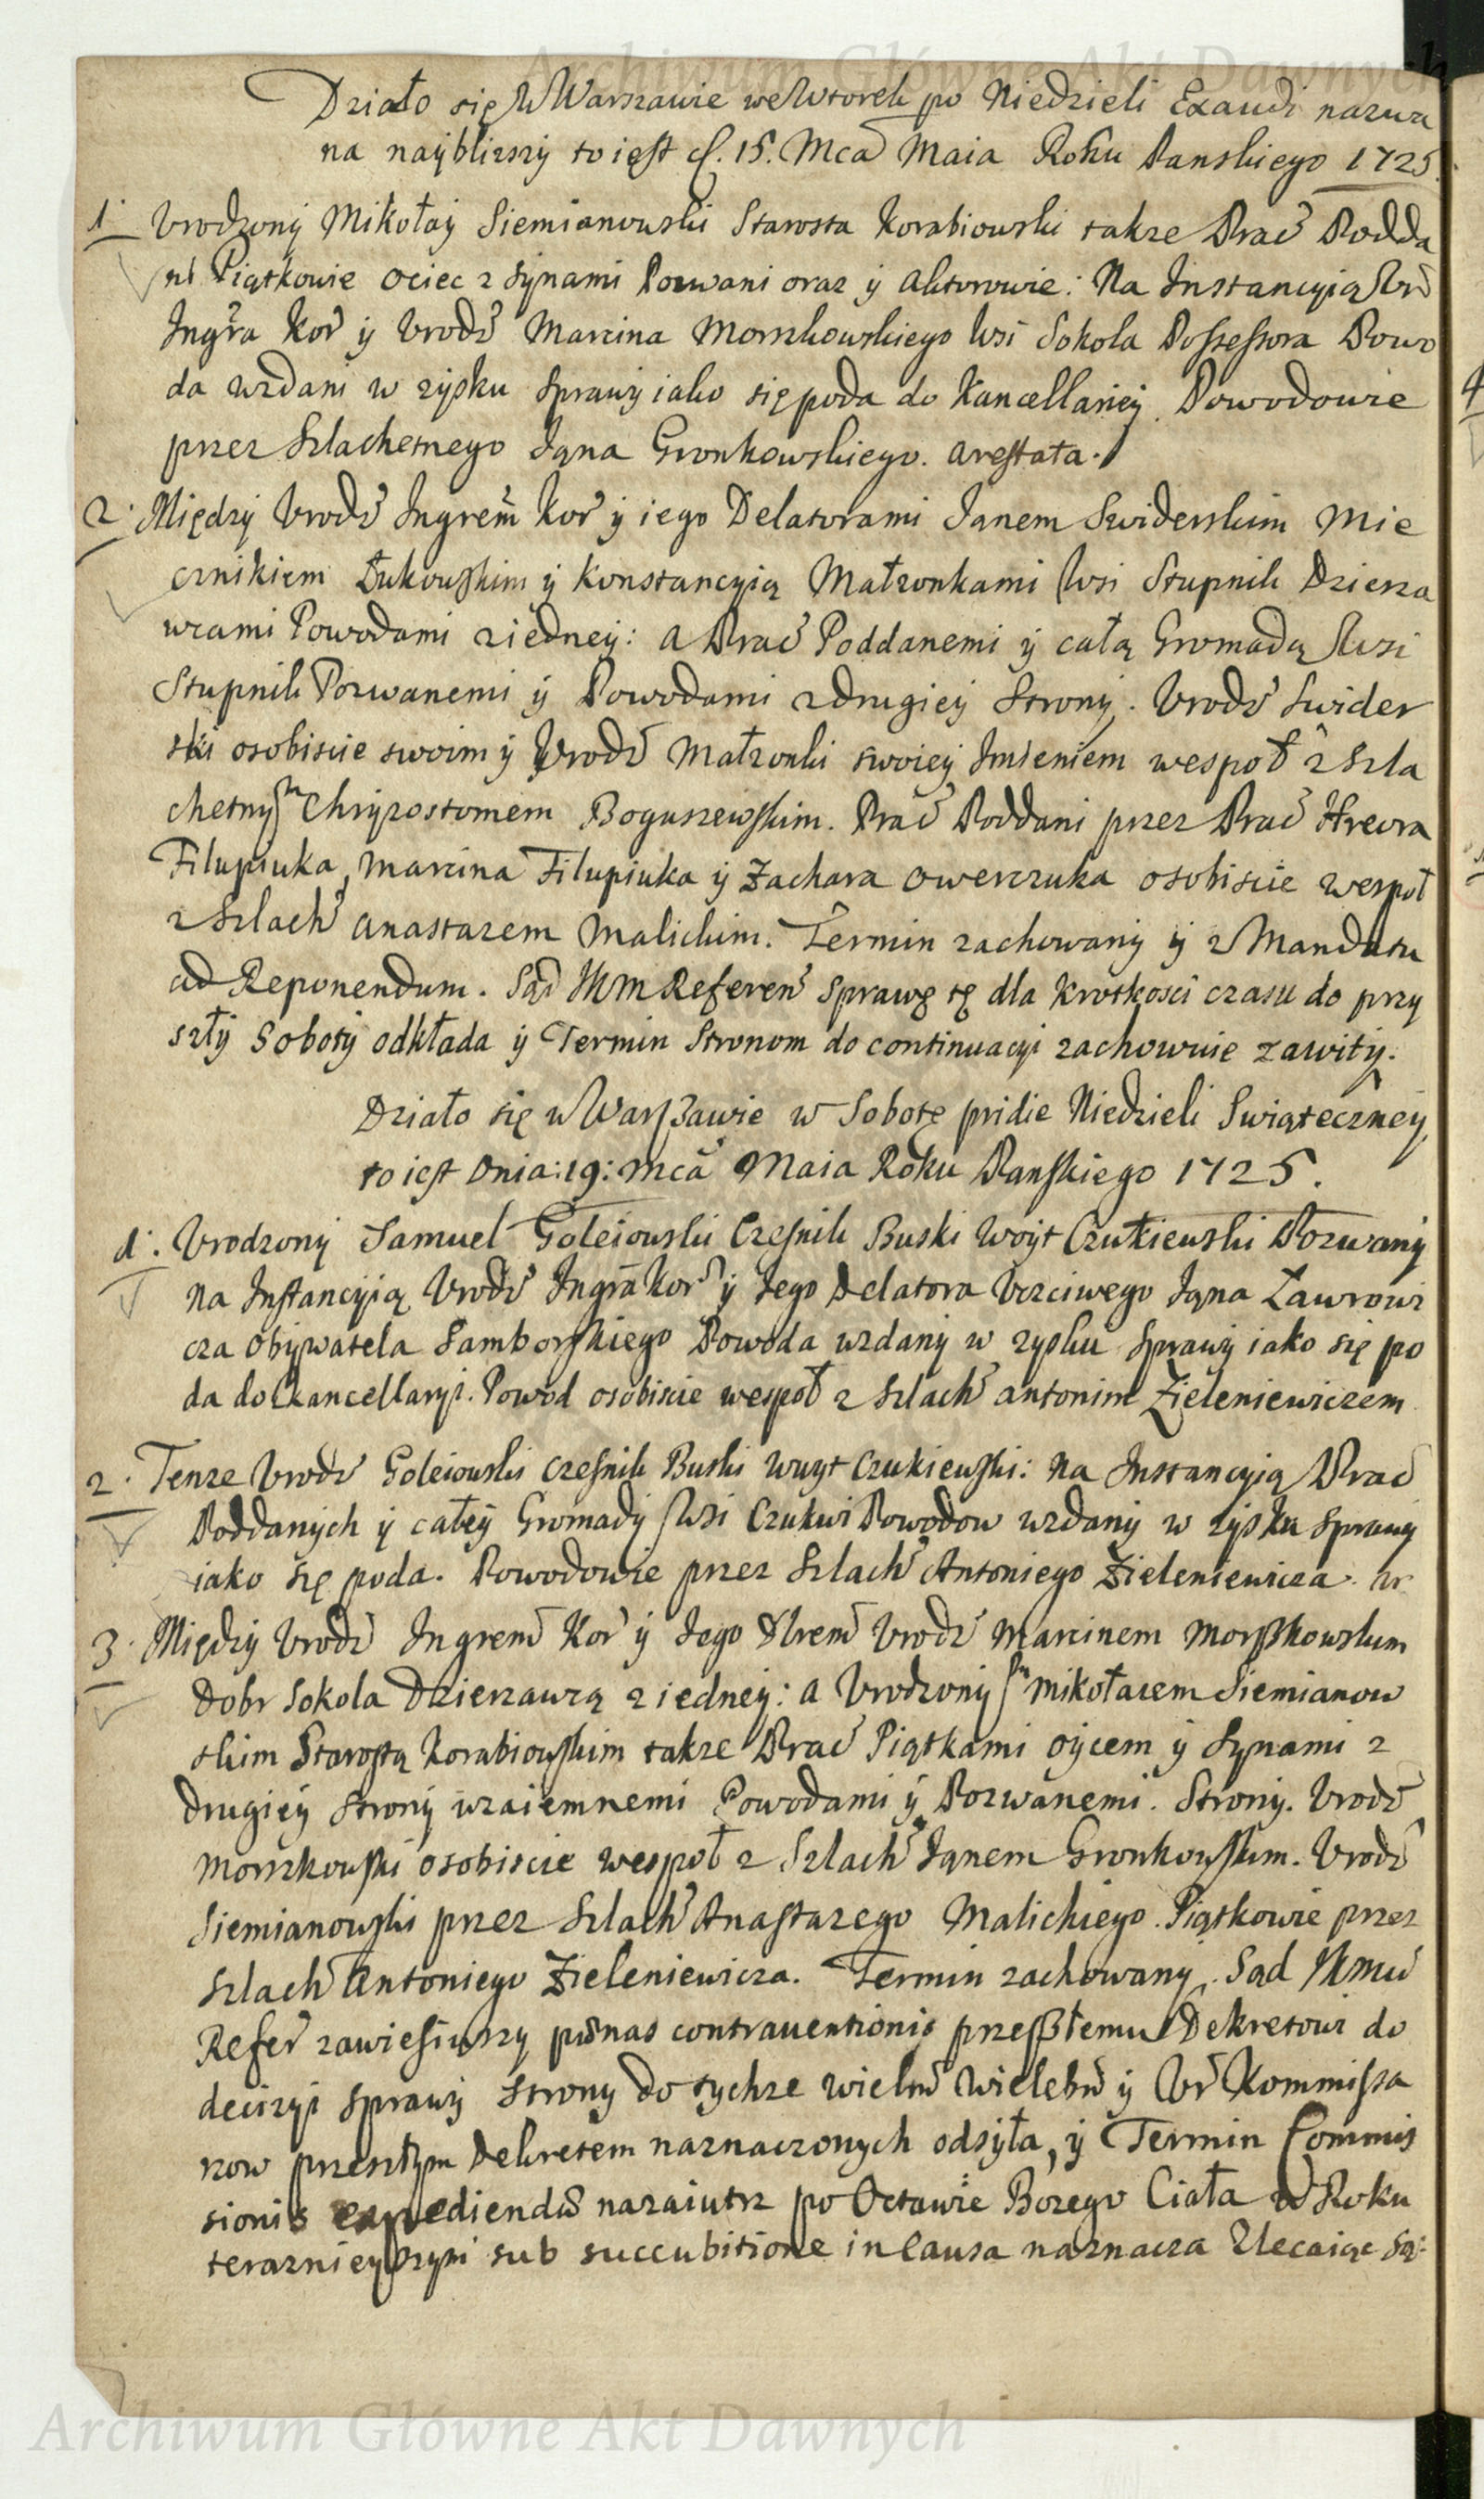 Działo się w Warszawie we Wtorek po Niedzieli Exaudi nazwa
na naÿblizszÿ to iest d. 15. Mca Maia Roku Panskiego 1725.
1. Vrodzonÿ Mikołaÿ Siemianowski Starosta Korabiowski takze Prac Podda
ni Piątkowie ociec z Sÿnami Pozwani oraz ÿ Aktorowie: Na Instancyią Vrd
Ingra Kor ÿ Vrodz Marcina Morszkowskiego Wsi Sokola Possessora Powo
da wzdani w zÿsku Sprawÿ iako się poda do Kancellarieÿ. Powodowie
przez Szlachetnego Jana Gronkowskiego. arestata.
2. Międzÿ Vrodz Ingrem Kor ÿ iego Delatorami Janem Swiderskim Mie
cznikiem Łukowskim ÿ Konstancyią Małzonkami Wsi Stupnik Dzierza
wcami Powodami z iedneÿ: a Prac Poddanemi ÿ całą Gromadą Wsi
Stupnik Pozwanemi ÿ Powodami z drugieÿ Stronÿ. Vrodz Swider
ski osobiscie swoim ÿ Vrodz Małzonki swoieÿ Imieniem wespoł z Szla
chetnÿm Chrÿzostomem Boguszewskim. Prac Poddani przez Prac Hrecra
Filupiuka, Marcina Filupiuka ÿ Zachara Owerczuka osobiscie wespoł
z Szlach Anastazem Malickim. Termin zachowanÿ ÿ z Mandatu
ad Reponendum. Sąd JKM Referen Sprawę tę dla krotkosci czasu do przy
szłÿ Sobotÿ odkłada ÿ Termin Stronom do continuacyi zachowuie zawitÿ.
Działo się w Warszawie w Sobotę pridie Niedzieli Swiąteczneÿ
to iest Dnia: 19: Mca Maia Roku Panskiego 1725.
1. Vrodzonÿ Samuel Goleiowski Czesnik Buski Woÿt Czukiewski Pozwanÿ
na Instancÿią Vrodz Ingra Kor ÿ Jego Delatora Vczciwego Jana Lawrowi
cza Obÿwatela Samborskiego Powoda wzdanÿ w zysku Sprawÿ iako się po
da do Kancellaryi. Powod osobiscie wespoł z Szlach Antonim Zieleniewiczem
2. Tenze Vrodz Goleiowski Czesnik Buski Woyt Czukiewski: na Instancyią Prac
Poddanych ÿ całeÿ Gromadÿ Wsi Czukwi Powodow wzdanÿ w zysku Sprawÿ
iako się poda. Powodowie przez Szlach Antoniego Zieleniewicza.
3. Międzÿ Vrodz Ingrem Kor ÿ Jego Vrodz Marcinem Morszkowskim
Dobr Sokola Dzierzawcą z iedneÿ: a Vrodzonÿm Mikołaiem Siemianow
skim Starostą Korabiowskim takze Prac Piątkami oÿcem ÿ Synami z
drugieÿ stronÿ wzaiemnemi Powodami ÿ Pozwanemi. Stronÿ. Vrodz
Morszkowski osobiscie wespoł z Szlach Janem Gronkowskim. Vrodz
Siemianowski przez Szlach Anastazego Malickiego. Piątkowie przez
Szlach Antoniego Zieleniewicza. Termin zachowanÿ. Sąd JKM
Refer zawiesiwszy pœnas contraventionis przeszłemu Dekretowi do
decizyi sprawÿ strony do tychze Wielm Wieleb ÿ Vr Kommissa
rzow przeszłym Dekretem naznaczonych odsÿła, ÿ Termin Commis
sionis expediendæ nazaiutrz po Octawie Bozego Ciała w Roku
teraznieÿszym sub succubitione in Causa naznacza Zlecaiąc Są: